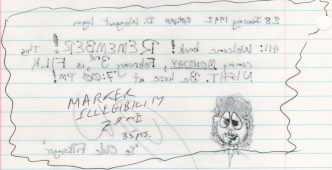 28 January 1992
All: Welcome back! REMEMBER! This
coming MONDAY, February 3rd is FILK
NIGHT. Be here at 7:00 PM!
MARKER
ILLEGIBILITY
ZONE
35 yrs.
"Ye Olde Filksinger"